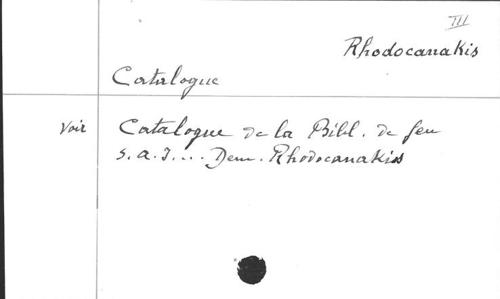 III
Rhodocanakis
Catalogue
Voir Catalogue de la Bibl. de feu
S.A.I... Dem. Rhodocanakis